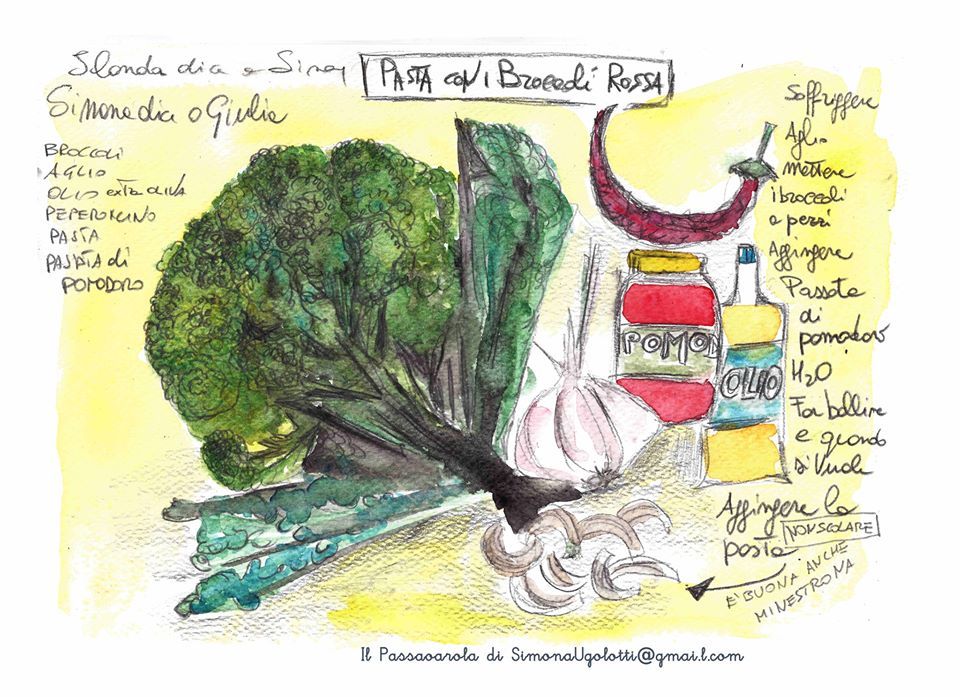 PASTA CON I BROCCOLI ROSSA
Simona dia a Giulia
BROCCOLI
AGLIO
OLIO extra OLIVA
PEPERONCINO
PASTA
PASSATA di
POMODORO
Soffriggere
Aglio
mettere
i broccoli
a pezzi
Aggingere
Passata
di
pomodoro
H2O
Far bollire
e quando
si vuole
Aggingere la
pasta
NON SCOLARE
E' BUONA ANCHE
MINESTRONA
POMO
OLIO
Il Passaoarola di SimonaUgolotti@gmai.l.com